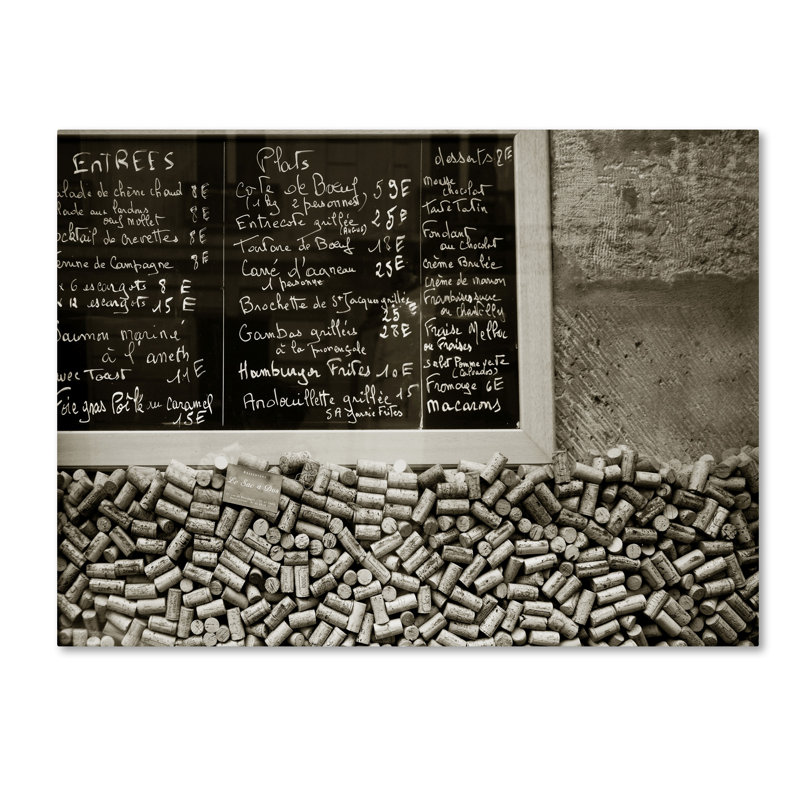 EnTREES
de chèvre chaud 8E
aux lardons
oeuf mollet 8E
de crevettes 8E
de Campagne 8E
x 6 escargots 8 E
x 12 escargots 15 E
mariné
à l'aneth
Toast 11E
gras Poêlé au caramel
15E
Plats
Cote de Boeuf 59E
(1 kg 2 personnes)
Entrecote grillée 25E
Tartare de Boeuf 18E
Carré d'agneau 25E
1 personne
Brochette de St Jacques grillés
25E
Gambas grillées 28E
à la provençale
Hamburger Frites 10E
Andouillette grillée 15
5A Frites
desserts 8E
Mousse
chocolat
Tarte Tatin
Fondant
au chocolat
Crème Brulée
Crème de marron
Framboises sucre
ou chantilly
Fraise Melba
ou Fraises
Sorbet Pomme verte
(Calvados)
Fromage 6E
Macarons
Le Sac à Dos